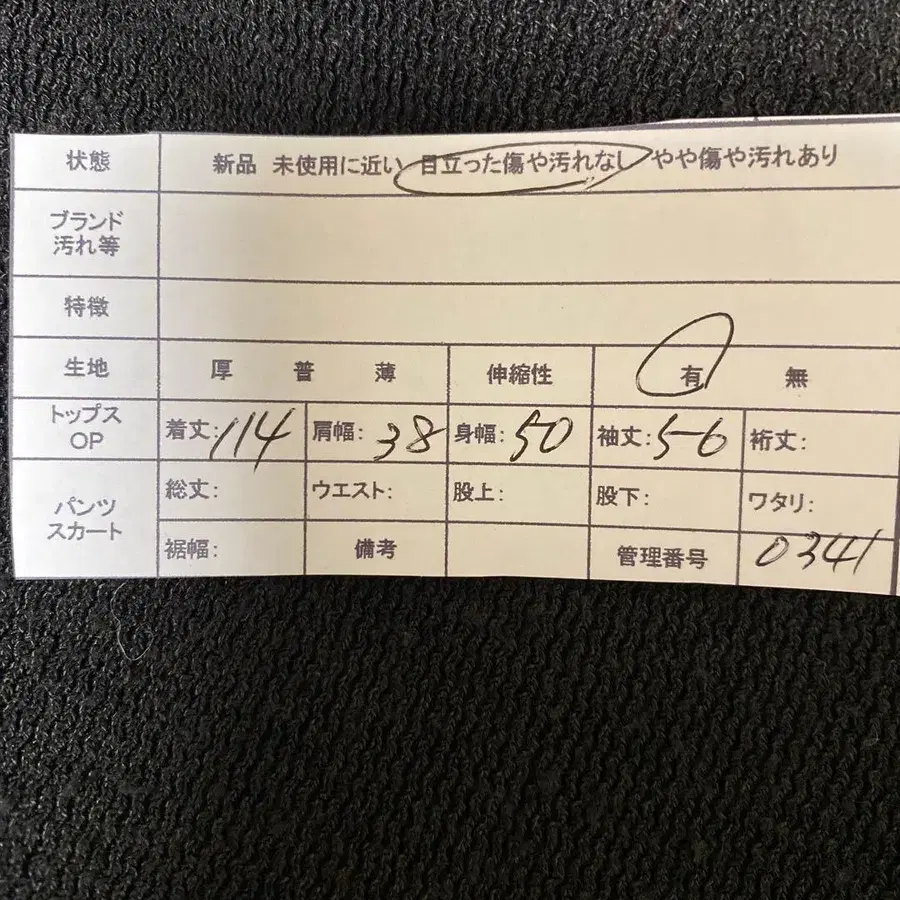 状態 新品 未使用に近い 目立った傷や汚れなし やや傷や汚れあり
ブランド
汚れ等
特徴
生地 厚 普 薄 伸縮性 有 無
トップス
OP 着丈:114 肩幅:38 身幅:50 袖丈:56 裄丈:
パンツ
スカート 総丈: ウエスト: 股上: 股下: ワタリ:
裾幅: 備考 管理番号 0341